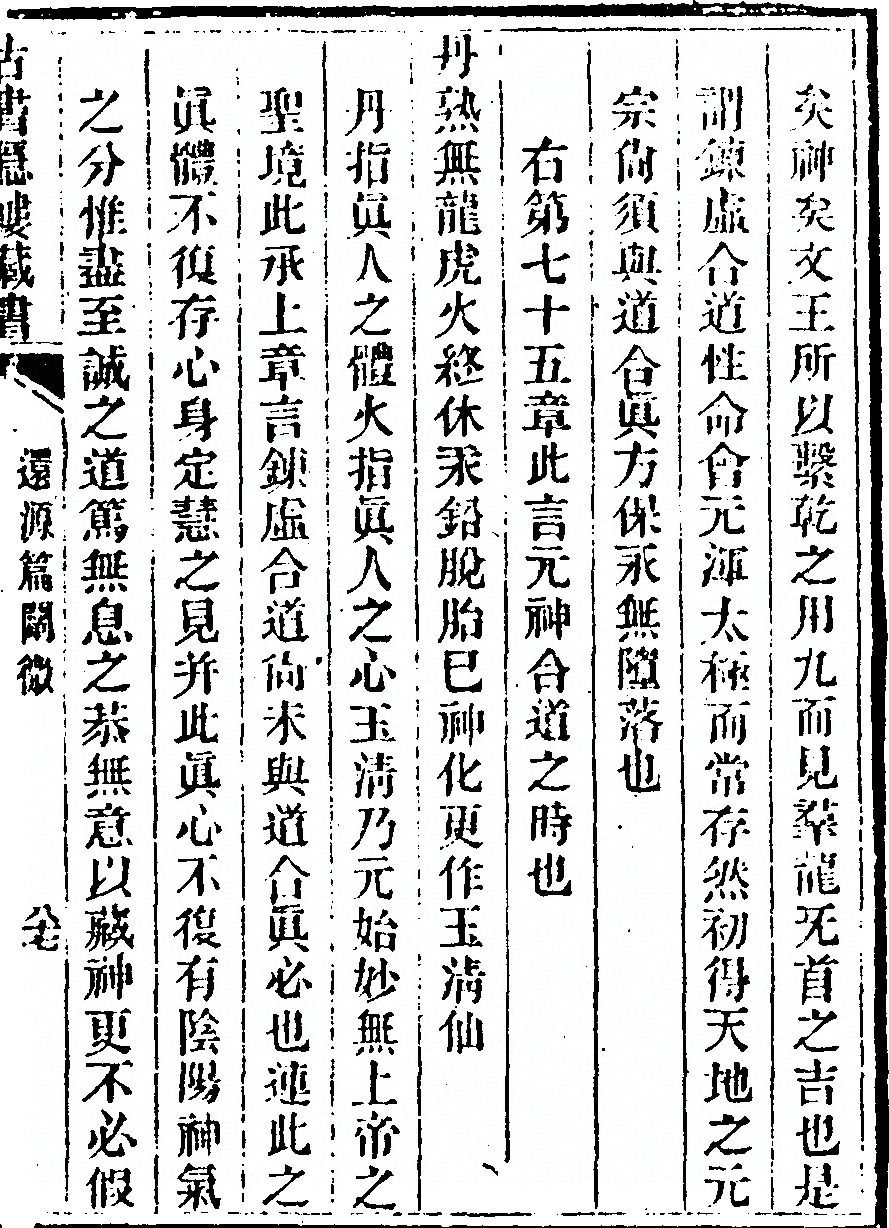 矣神矣文王所以繫乾之用九而見羣龍旡首之吉也是
謂鍊虛合道性命會元渾太極而常存然初得天地之元
宗尙須與道合眞方保永無墮落也
右第七十五章此言元神合道之時也
丹熟無龍虎火終休汞鉛脫胎已神化更作玉淸仙
丹指眞人之體火指眞人之心玉淸乃元始妙無上帝之
聖境此承上章言鍊虛合道尙未與道合眞必也連此之
眞體不復存心身定慧之見并此眞心不復有陰陽神氣
之分惟盡至誠之道篤無息之恭無意以藏神更不必假
古書隱樓藏書
還源篇闡微